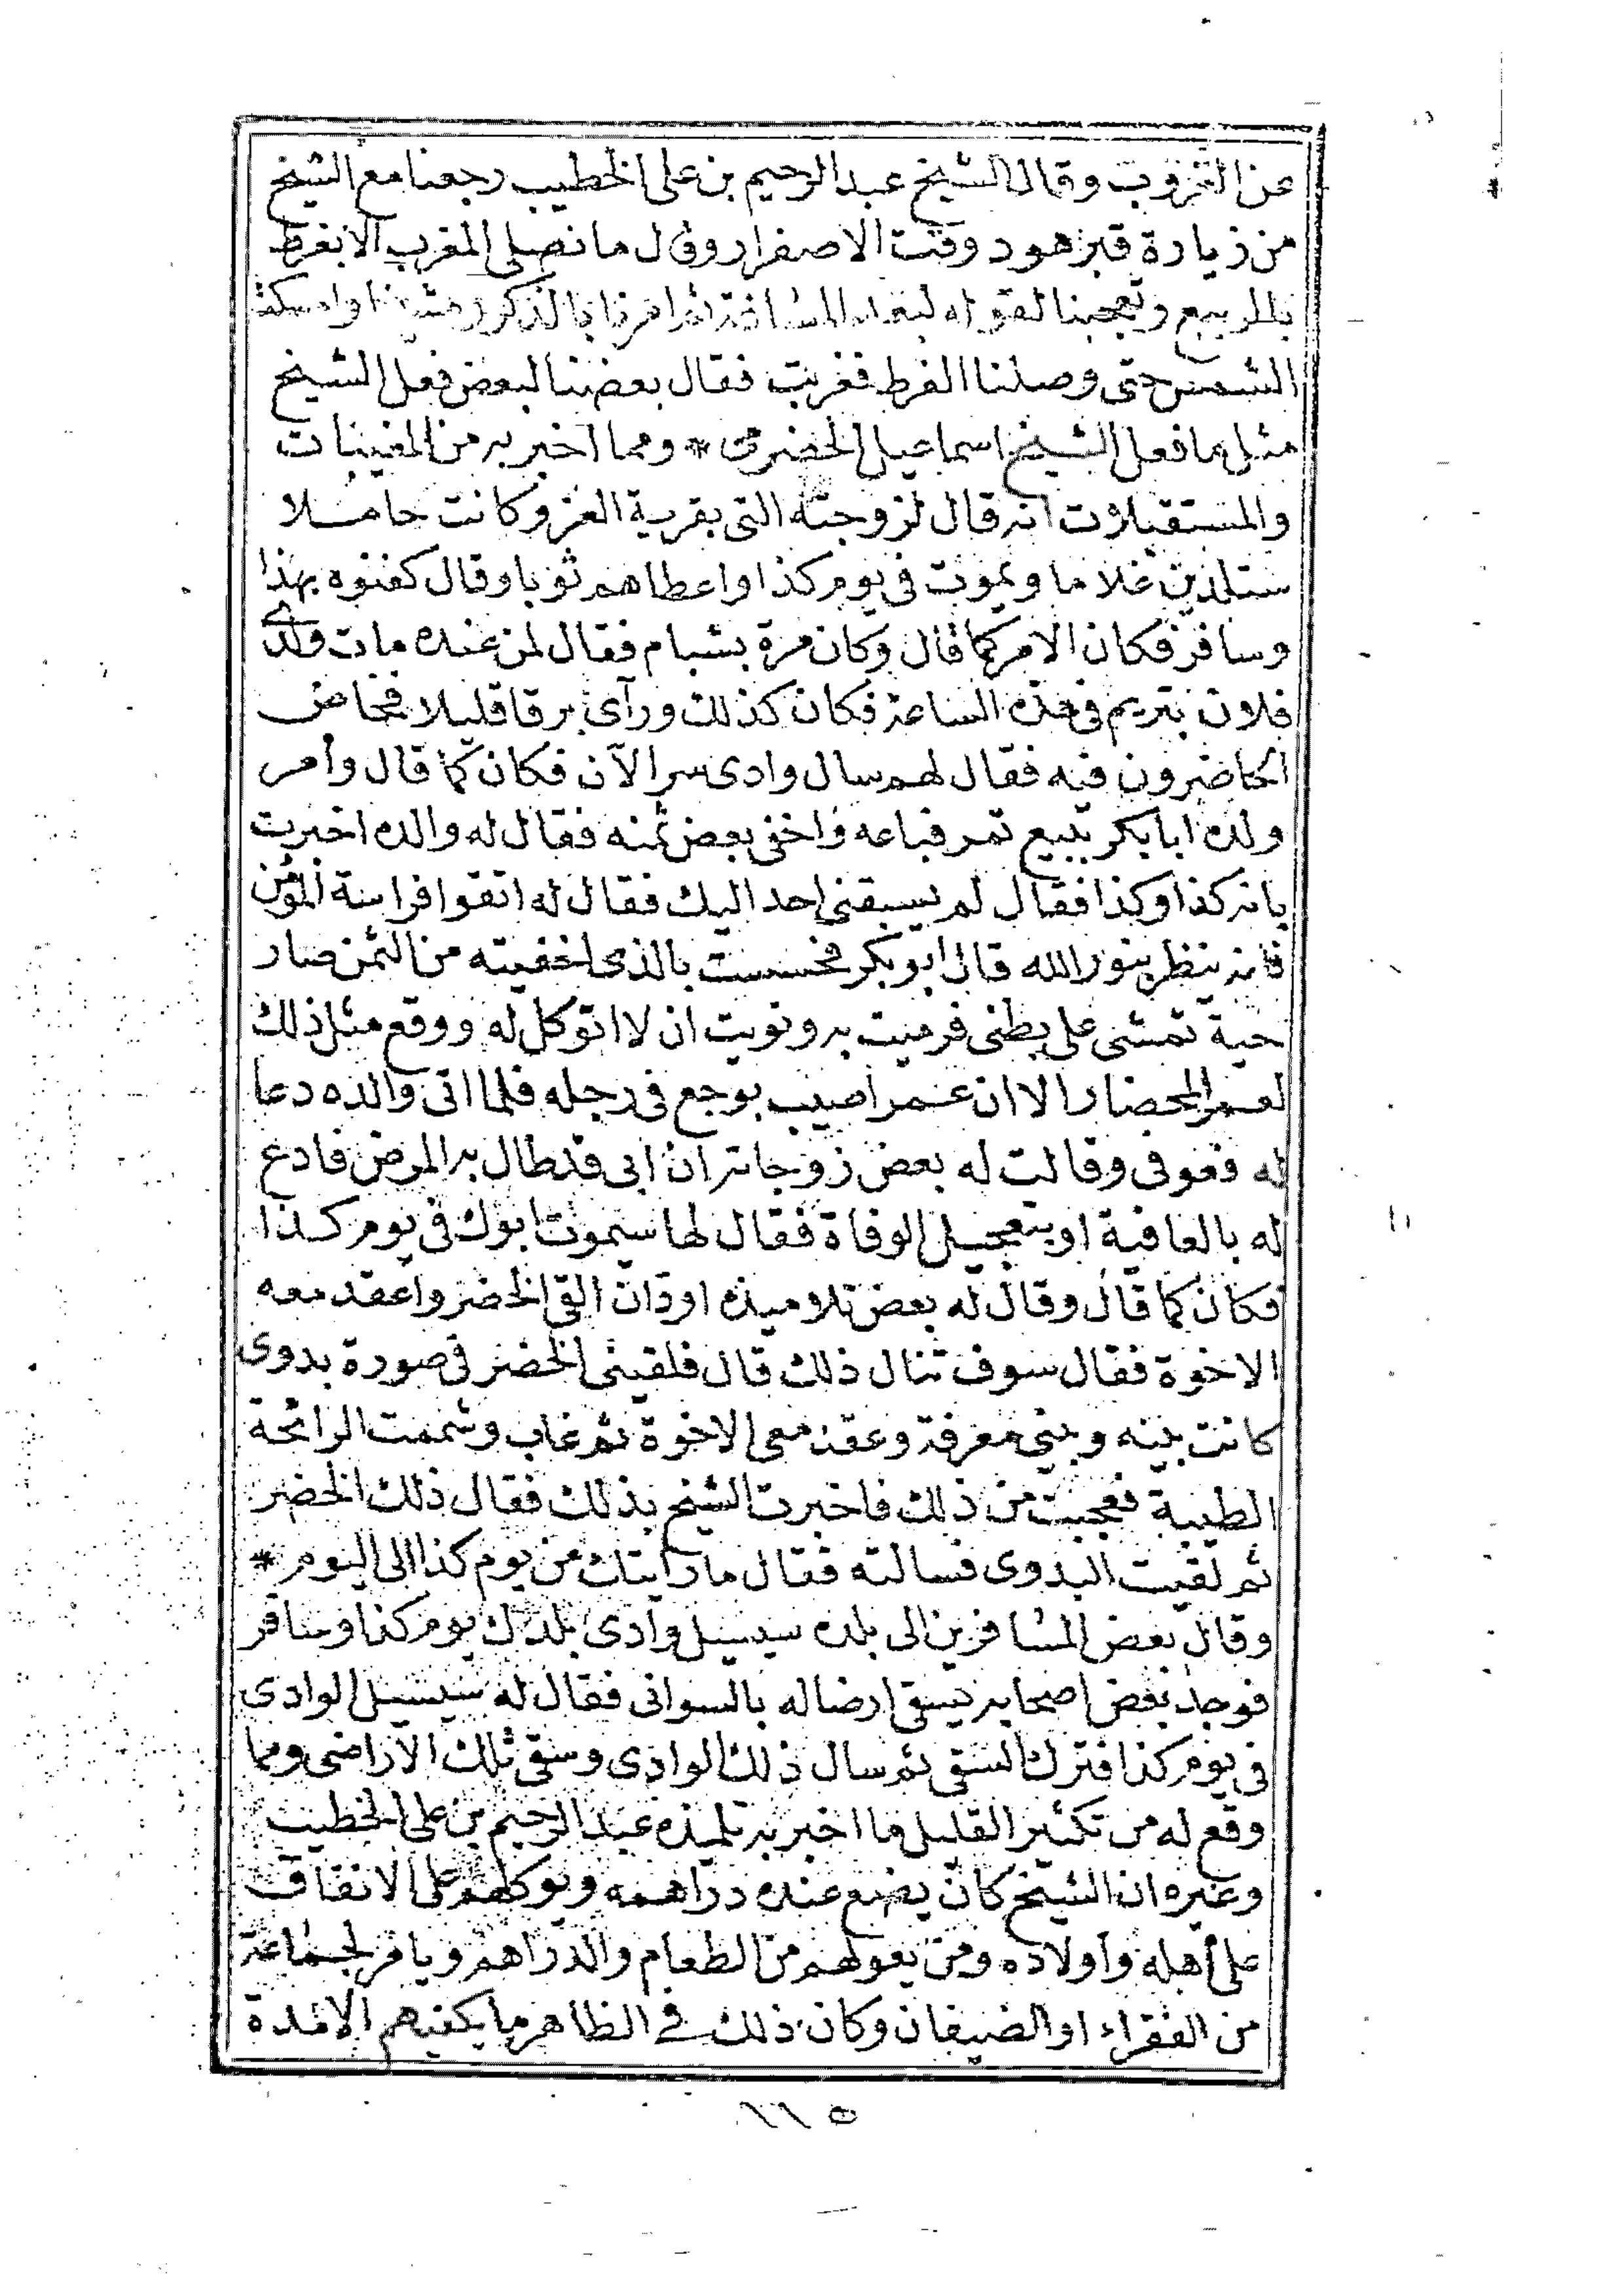 عن الغروب وقال الشيخ عبد الرحيم بن على الخطيب رجعنا مع الشيخ
من زيارة قبر هود وقت الاصفرار وقال ما نصلى المغرب الا بفرط
بالربيع وتعجبنا لقوله لبعد المسافة ثم امرنا بالذكر ومشينا وامسكت
الشمس حتى وصلنا الفرط فغربت فقال بعضنا لبعض فعل الشيخ
مثل ما فعل الشيخ اسماعيل الحضرمى * ومما اخبر به من المغيبات
والمستقبلات انه قال لزوجته التى بقرية العز وكانت حامـلا
ستلدين غلاما ويموت فى يوم كذا واعطاهم ثوبا وقال كفنوه بهذا
وسافر فكان الامر كما قال وكان مرة بشبام فقال لمن عنده مات ولد
فلان بتريم فى هذه الساعة فكان كذلك ورآى برقا قليلا فخاض
الحاضرون فيه فقال لهم سال وادى سر الآن فكان كما قال وأمر
ولده ابا بكر ببيع تمر فباعه واخفى بعض ثمنه فقال له والده اخبرت
بانه كذا وكذا فقال لم يسبقنى احد اليك فقال له اتقوا فراسة المؤمن
فانه ينظر بنور الله قال ابو بكر فحسست بالذى اخفيته من الثمن صار
حية تمشى على بطنى فرميت به ونويت ان لا اتوكل له ووقع مثل ذلك
لعمر المحضار الا ان عمر اصيب بوجع فى رجله فلما اتى والده دعا
له فعوفى وقالت له بعض زوجاته ان ابى قد طال به المرض فادع
له بالعافية او بتعجيل الوفاة فقال لها سيموت ابوك فى يوم كذا
فكان كما قال وقال له بعض تلاميذه اود ان القى الخضر واعقد معه
الاخوة فقال سوف تنال ذلك قال فلقينى الخضر فى صورة بدوى
كانت بينه وبينى معرفة وعقد معى الاخوة ثم غاب وشممت الرائحة
الطيبة فعجبت من ذلك فاخبرت الشيخ بذلك فقال ذلك الخضر
ثم لقيت البدوى فسالته فقال ما رايتك من يوم كذا الى اليوم *
وقال بعض المسافرين الى بلده سيسيل وادى بلدك يوم كذا وسافر
فوجد بعض اصحابه يسقى ارضا له بالسوانى فقال له سيسيل الوادى
فى يوم كذا فترك السقى ثم سال ذلك الوادى وسقى تلك الاراضى ومما
وقع له من تكثير القليل ما اخبر به تلميذه عبد الرحيم بن على الخطيب
وغيره ان الشيخ كان يضع عنده دراهمه ويوكلهم على الانفاق
على أهله وأولاده ومن يعولهم من الطعام والدراهم ويامر لجماعة
من الفقراء او الضيفان وكان ذلك فى الظاهر ما يكفيهم الا مدة
١١٥